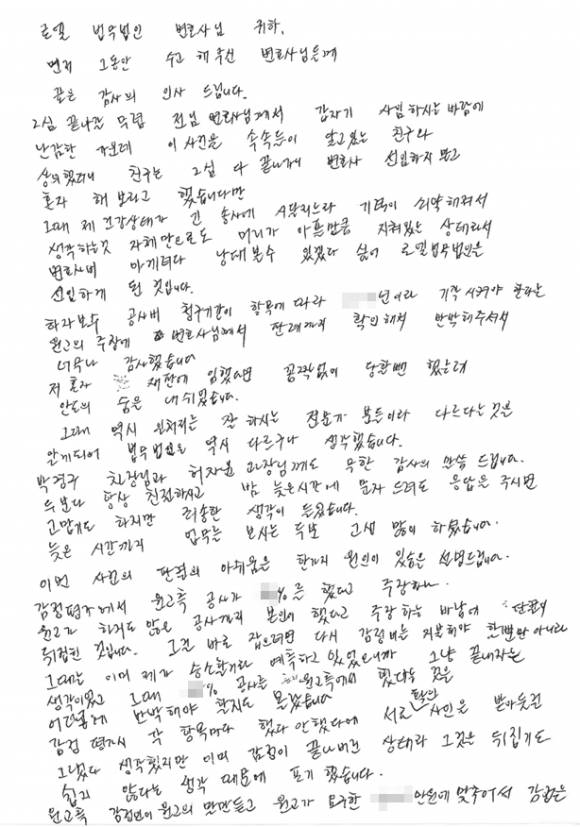 로엘 법무법인 변호사님 귀하.
먼저 그동안 수고 해 주신 변호사님들께
깊은 감사의 인사 드립니다.
2심 끝나갈 무렵 전임 변호사님께서 갑자기 사임 하시는 바람에
난감한 가운데 이 사건을 속속들이 알고있는 친구와
상의했더니 친구는 2심 다 끝나가니 변호사 선임하지 말고
혼자 해 보라고 했습니다만
그때 제 건강상태가 긴 송사에 시달리느라 기력이 쇠약해져서
생각하는것 자체만으로도 머리가 아플만큼 지쳐있는 상태라서
변호사비 아끼려다 낭패볼수 있겠다 싶어 로엘법무법인을
선임하게 된 것입니다.
하자보수 공사비 청구기간이 항목에 따라 년이라 기각시켜야 한다는
원고의 주장에 변호사님께서 판례까지 확인해서 반박해주셔서
너무나 감사했습니다
저 혼자 재판에 임했으면 꼼짝없이 당할뻔 했는데
안도의 숨을 내쉬었습니다.
그때 역시 일처리는 잘 하시는 전문가 분들이라 다르다는것을
알게되어 법무법인은 역시 다르구나 생각했습니다.
박경구 실장님과 허자윤 과장님께도 무한 감사의 말씀 드립니다.
두분다 항상 친절하시고 밤 늦은시간에 문자 드려도 응답을 주시면
고맙기도 하지만 죄송한 생각이 들었습니다.
늦은 시간까지 업무를 보시는 두분 고생 많이 하셨습니다.
이번 사건의 판결의 아쉬움은 한가지 원인이 있음을 설명드립니다.
감정평가에서 원고측 공사가 %를 했다고 주장하니
원고가 하지도 않은 공사까지 본인이 했다고 주장하는 바람에 판결이
뒤집힌 것입니다. 그걸 바로 잡으려면 다시 감정비를 지불해야 할뿐만 아니라
그때는 이미 제가 승소할거라 예측하고 있었으니까 그냥 끝내자는
생각이었고 그때 % 공사를 원고측에서 했다는 것을
어떻게 반박해야 할지도 몰랐습니다
감정 평가시 각 항목마다 했다 안했다에 서로 확인 사인을 받아둘걸
그랬다 생각했지만 이미 감정이 끝나버린 상태라 그것을 뒤집기도
쉽지 않다는 생각 때문에 포기 했습니다.
원고측 감정인이 원고의 말만듣고 원고가 요구한 만원에 맞추어서 감정을